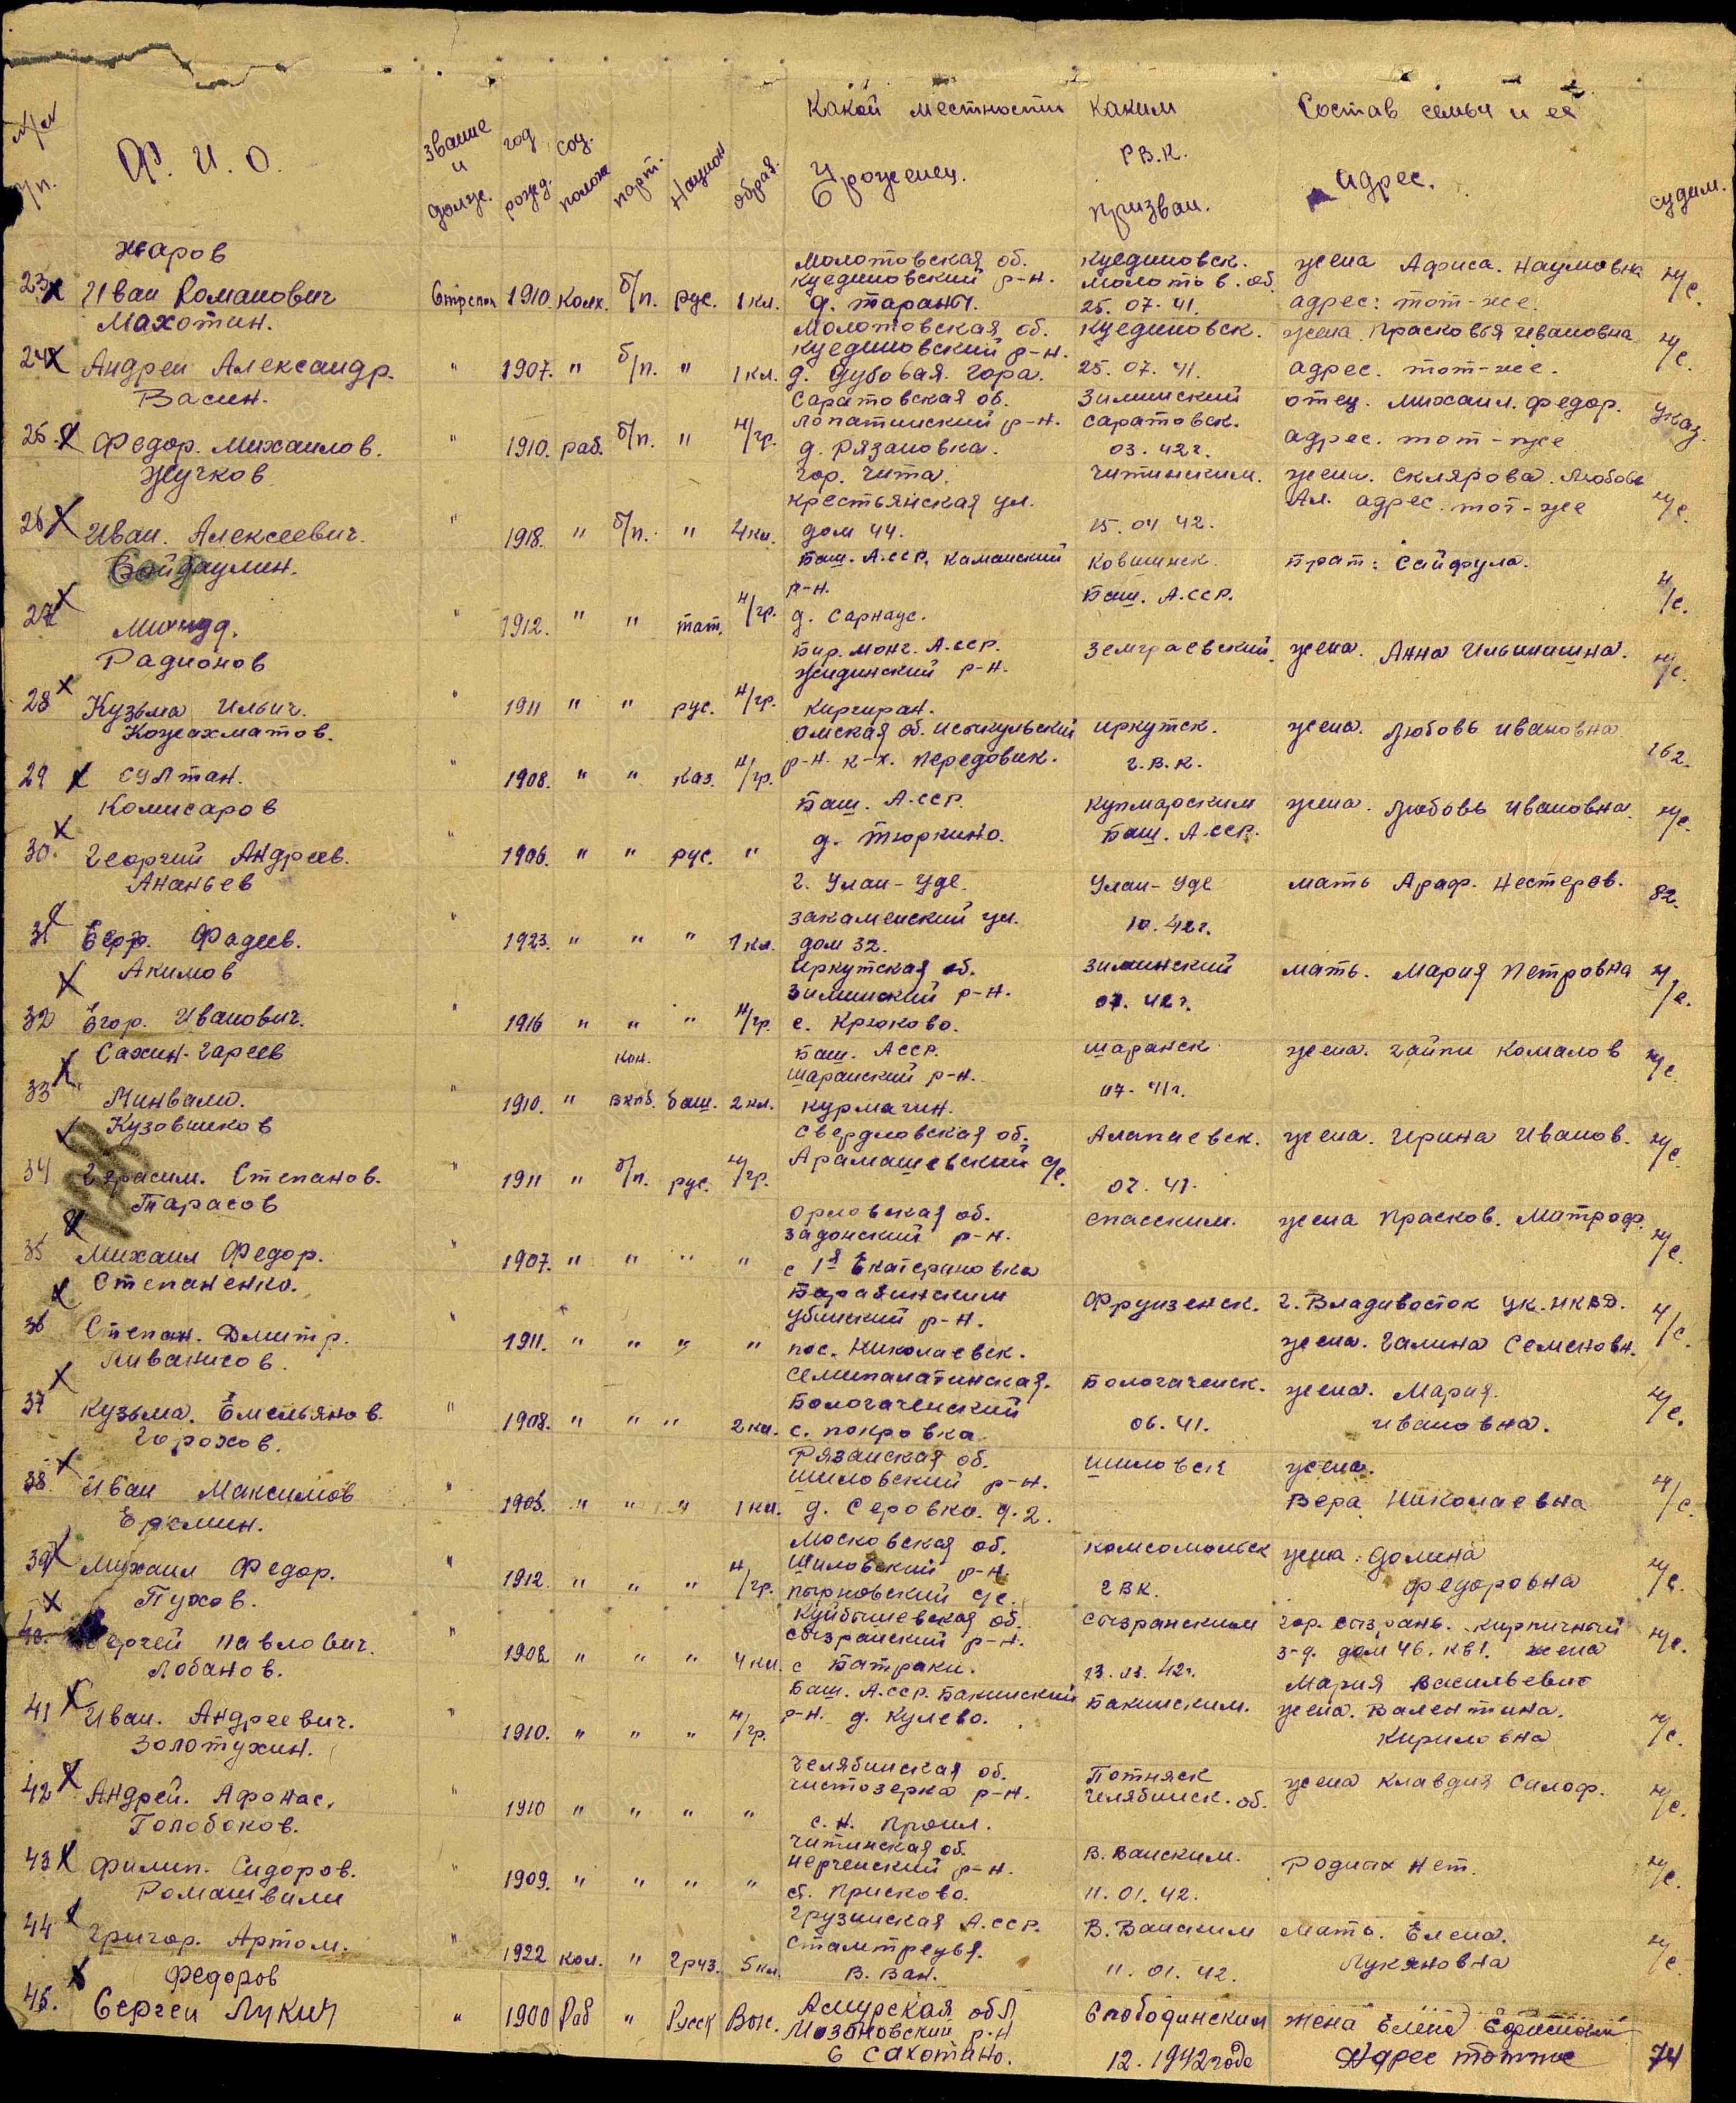 №/№ п/п. Ф. И. О. звание и должс. год рожд. соц. полож парт. Национ образ. Какой местности Уроженец. Каким Р.В.К. призван. Состав семьи и ее Адрес. судим.
Жаров Молотовская об. Куединовск. жена Афиса. Наумовна н/с.
23 Иван Романович Стрелок 1910. Колх. б/п. рус. 1 кл. Куединовский р-н. д. Тараны. Молотов. об. 25.07.41. адрес: тот-же.
Махотин. Молотовская об. Куединовск. жена. Прасковья Ивановна н/с.
24 Андреи Александр. " 1907. " б/п. " 1 кл. Куединовский р-н. д. Дубовая. Гора. 25.07.41. адрес. тот-же.
Васин. Саратовская об. Зиминский отец. Михаил. Федор. Указ.
25. Федор. Михаилов. " 1910. раб. б/п. " н/гр. Лопатинский р-н. д. Рязановка. Саратовск. 03.42г. адрес. тот-же
Жучков гор. Чита. Читинским. жена. Склярова. Любовь н/с.
26 Иван. Алексеевич. " 1918. " б/п. " 4 кл. Крестьянская ул. дом 44. 15.04 42. Ал. адрес. тот-же
Баш. А.ССР. Каманский Башт. А.ССР. брат: Сайфула. н/с.
27 " 1912. " " тат. н/гр. р-н. д. Сарнаус.
Радионов Бур. Монг. А.ССР. жена. Анна Ильинишна. н/с.
28 Кузьма Ильич. " 1911 " " рус. н/гр. Жидинский р-н. Киргиран.
Кожахматов. Омская об. Исыкульский Иркутск. жена. Любовь Ивановна 162.
29 Султан. " 1908. " " каз. н/гр. р-н. к-х. Передовик. г.в.к.
Комисаров Баш. А.ССР. жена. Любовь Ивановна. н/с.
30. Георгий Андреев. " 1906. " " рус. " д. Тюркино. Баш. А.ССР.
Ананьев г. Улан-Уде. Улан-Уде мать Араф. Нестеров. 82.
31 Ефр. Фадеев. " 1923. " " " 7 кл. Закаменский ул. дом 32. 10.42г.
Акимов Иркутская об. Зиминский мать. Мария Петровна н/с.
32 Егор. Иванович. " 1916 " " " н/гр. Зиминский р-н. с. Крюково. 07.42г.
Сахин-Гареев Баш. АССР. Шаранск. жена. Гайни Комалов н/с.
33 Минвали. " 1910. " кан. вкпб. баш. 2 кл. Шаранский р-н. Курмагин. 07-41г.
Кузовников Свердловская об. Алапаевск. жена. Ирина Иванов. н/с.
34 Герасим. Степанов. " 1911 " б/п. рус. н/гр. Арамашевский с/с. 07.41.
Тарасов Орловская об. Спасским. жена Прасков. Митроф. н/с.
35 Михаил Федор. " 1907. " " " " Задонский р-н. с 1я Екатериновка
Степаненко. Барабинским Фрунзенск. г. Владивосток ук. НКВД. н/с.
36 Степан. Дмитр. " 1911. " " " " Убинский р-н. пос. Николаевск. жена. Галина Семеновн.
Ливанисов. Семипалатинская. Бологаченск. жена. Мария. н/с.
37 Кузьма. Емельянов. " 1908. " " " 2 кл. Бологаченский с. Покровка 06.41. Ивановна.
Горохов. Рязанская об. Шиловск жена. н/с.
38. Иван Максимов " 1905. " " " 1 кл. Шиловский р-н. д. Серовка. д.2. Вера Николаевна
Еремин. Московская об. Комсомольск жена: Домина н/с.
39 Михаил Федор. " 1912. " " " н/гр. Шиловский р-н. Пырковский с/с. ГВК. Федоровна
Пухов. Куйбышевская об. Сызранским гор. Сызрань. Кирпичный н/с.
40. Сергей Павлович. " 1908 " " " 4 кл. Сызранский р-н. с Батраки. 13.03.42г. з-д. дом 46. кв1. жена
Лобанов. Баш. А.ССР. Бакинский Бакинским. Мария Васильевис
41 Иван. Андреевич. " 1910. " " " н/гр. р-н. д. Кулево. жена. Валентина. Кириловна н/с.
Золотухин. Челябинская об. жена Клавдия Силоф. н/с.
42 Андрей. Афонас. " 1910 " " " " Чистозерка р-н. с. Н. Проил. Челябинск. об.
Голобоков. Читинская об. В. Ванским. Родных нет. н/с.
43 Филип. Сидоров. " 1909. " " " " Нерченский р-н. с. Присково. 11.01.42.
Ромашвили Грузинская А.ССР. В. Ванским Мать. Елена. н/с
44 Григор. Артом. " 1922 кол. " Груз. 5 кл. В. Ван. 11.01.42. Лукяновна
Федоров Амурская обл Слободинским жена Елена
45. Сергеи Лукич " 1900 Раб " Русск Мазановский р-н С Сахотино. 12.1942 года Адрес тотже 74